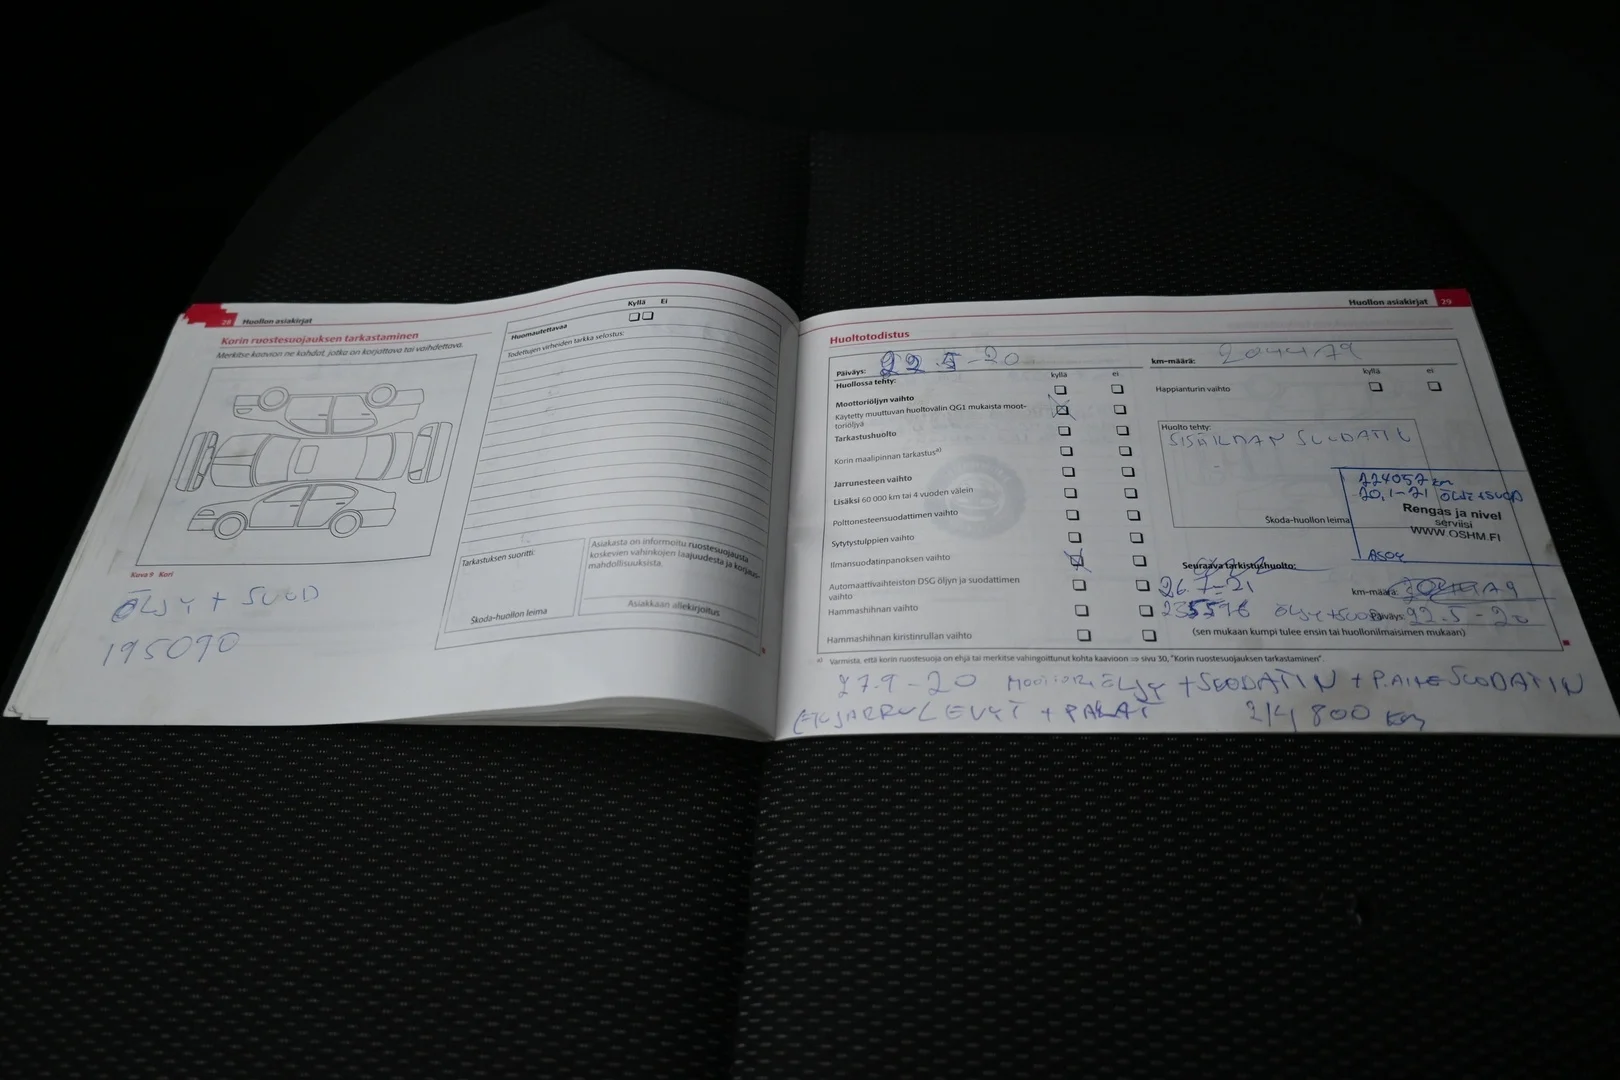 28 Huollon asiakirjat
Korin ruostesuojauksen tarkastaminen
Merkitse kaavioon ne kohdat, jotka on korjattava tai vaihdettava.
Kuva 9 Kori
ÖLJY + SUOD
195090
Kyllä Ei
Huomautettavaa
Todettujen virheiden tarkka selostus:
Tarkastuksen suoritti:
Škoda-huollon leima
Asiakasta on informoitu ruostesuojausta
koskevien vahinkojen laajuudesta ja korjaus-
mahdollisuuksista.
Asiakkaan allekirjoitus
Huollon asiakirjat 29
Huoltotodistus
Päiväys: 22.5-20
km-määrä: 204479
Huollossa tehty:
kyllä ei
Moottoriöljyn vaihto
Käytetty muuttuvan huoltovälin QG1 mukaista moot-
toriöljyä
Tarkastushuolto
Korin maalipinnan tarkastus a)
Jarrunesteen vaihto
Lisäksi 60 000 km tai 4 vuoden välein
Polttonesteensuodattimen vaihto
Sytytystulppien vaihto
Ilmansuodatinpanoksen vaihto
Automaattivaihteiston DSG öljyn ja suodattimen
vaihto
Hammashihnan vaihto
Hammashihnan kiristinrullan vaihto
kyllä ei
Happianturin vaihto
Huolto tehty:
SISÄILMAN SUODATIN
224057 km
20.1-21 ÖLJY+SUOD
Rengas ja nivel
serviisi
WWW.OSHM.FI
Škoda-huollon leima
Seuraava tarkistushuolto:
26.7-21
km-määrä:
235598 ÖLJY+SUOD
Päiväys: 22.5-20
(sen mukaan kumpi tulee ensin tai huollonilmaisimen mukaan)
a) Varmista, että korin ruostesuoja on ehjä tai merkitse vahingoittunut kohta kaavioon ⇒ sivu 30, "Korin ruostesuojauksen tarkastaminen".
27.9-20 MOOTTORIÖLJY + SUODATIN + P.AINESUODATIN
ETUJARRULEVYT + PALAT 214800 km